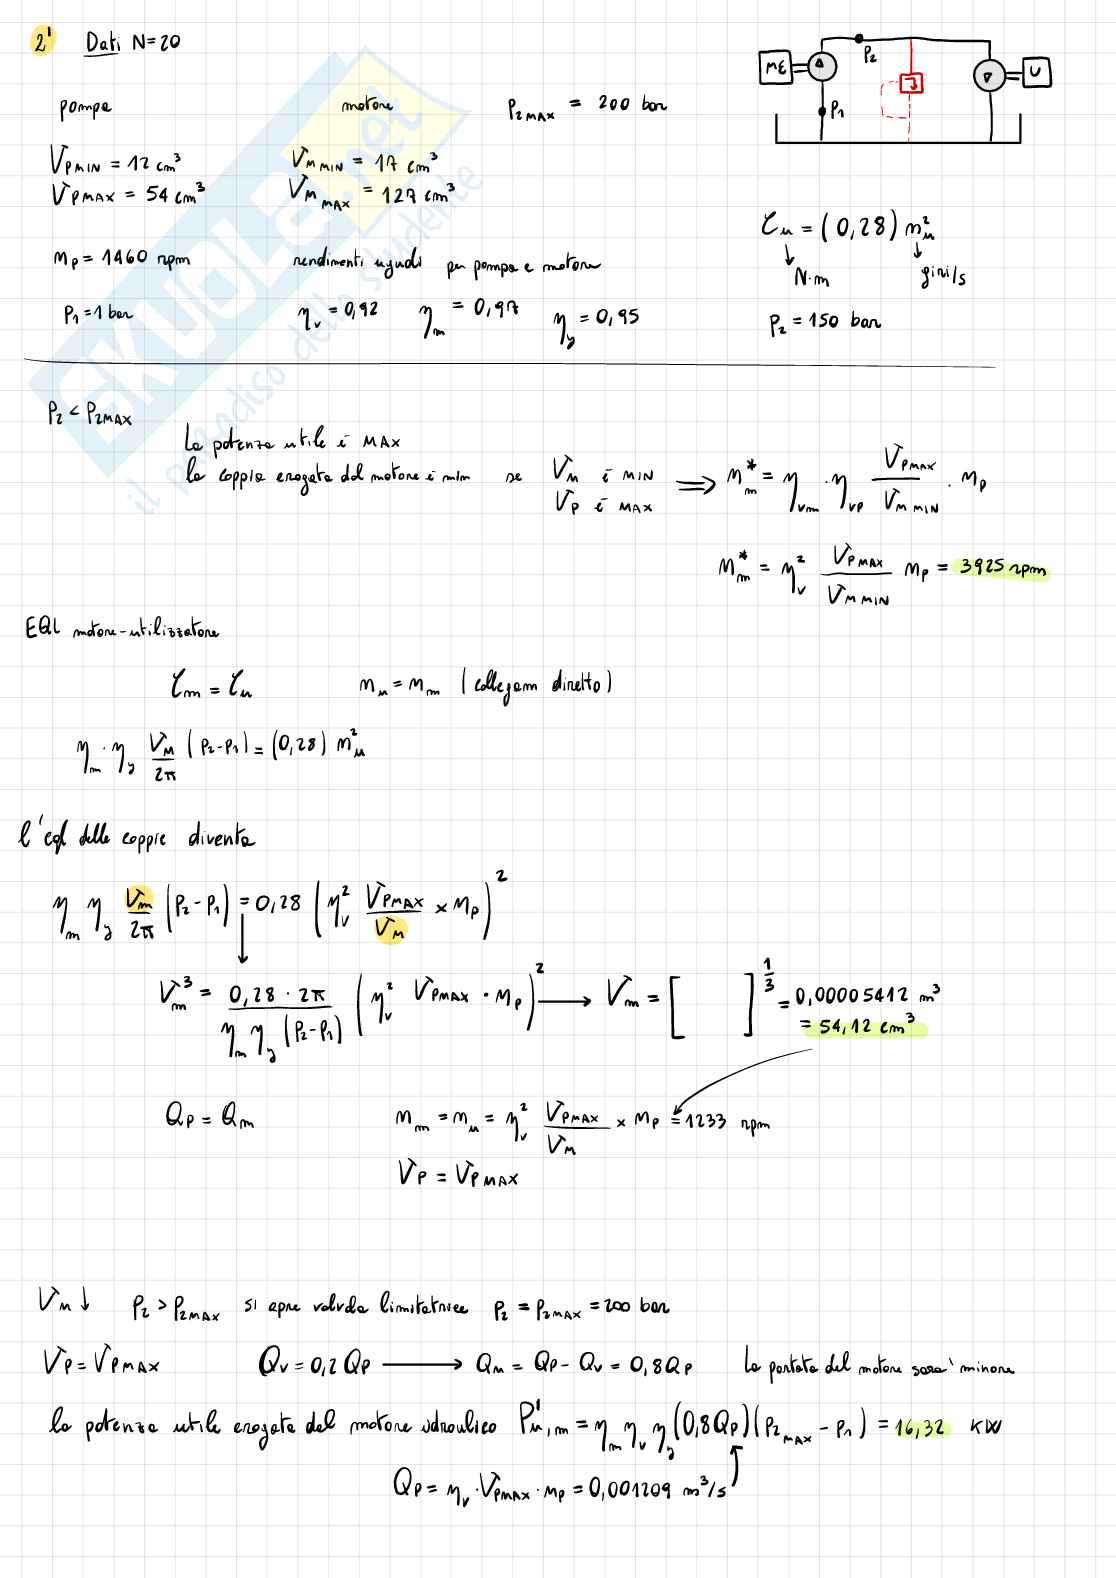 2' Dati N=20
ME P2 U
P1
pompa motore P2MAX = 200 bar
VPMIN = 12 cm³ VM MIN = 17 cm³
VPMAX = 54 cm³ VM MAX = 127 cm³
Cu = (0,28) nu²
N·m giri/s
nP = 1460 rpm rendimenti uguali per pompa e motore
P1 = 1 bar ηv = 0,92 ηm = 0,97 ηy = 0,95 P2 = 150 bar
P2 < P2MAX
la potenza utile è MAX
la coppia erogata dal motore è min se VM è MIN ⟹ nm* = ηvm · ηvp VPMAX / VM MIN · nP
VP è MAX
nm* = ηv² VPMAX / VM MIN nP = 3925 rpm
EQL motore-utilizzatore
Cm = Cu nu = nm (collegam diretto)
ηm · ηy VM / 2π (P2-P1) = (0,28) nu²
l'eql delle coppie diventa
ηm ηy Vm / 2π (P2-P1) = 0,28 (ηv² VPMAX / VM × nP)²
Vm³ = 0,28 · 2π / ηm ηy (P2-P1) (ηv² VPMAX · nP)² → Vm = [ ]^1/3 = 0,00005412 m³
= 54,12 cm³
QP = Qm nm = nu = ηv² VPMAX / VM × nP = 1233 rpm
VP = VPMAX
VM ↓ P2 > P2MAX si apre valvola limitatrice P2 = P2MAX = 200 bar
VP = VPMAX Qv = 0,2 QP → Qm = QP - Qv = 0,8 QP la portata del motore sara' minore
la potenza utile erogata dal motore idraulico P'u,m = ηm ηv ηy (0,8 QP) (P2MAX - P1) = 16,32 KW
QP = ηv · VPMAX · nP = 0,001209 m³/s
SKUOLA.net
il paradiso dello studente